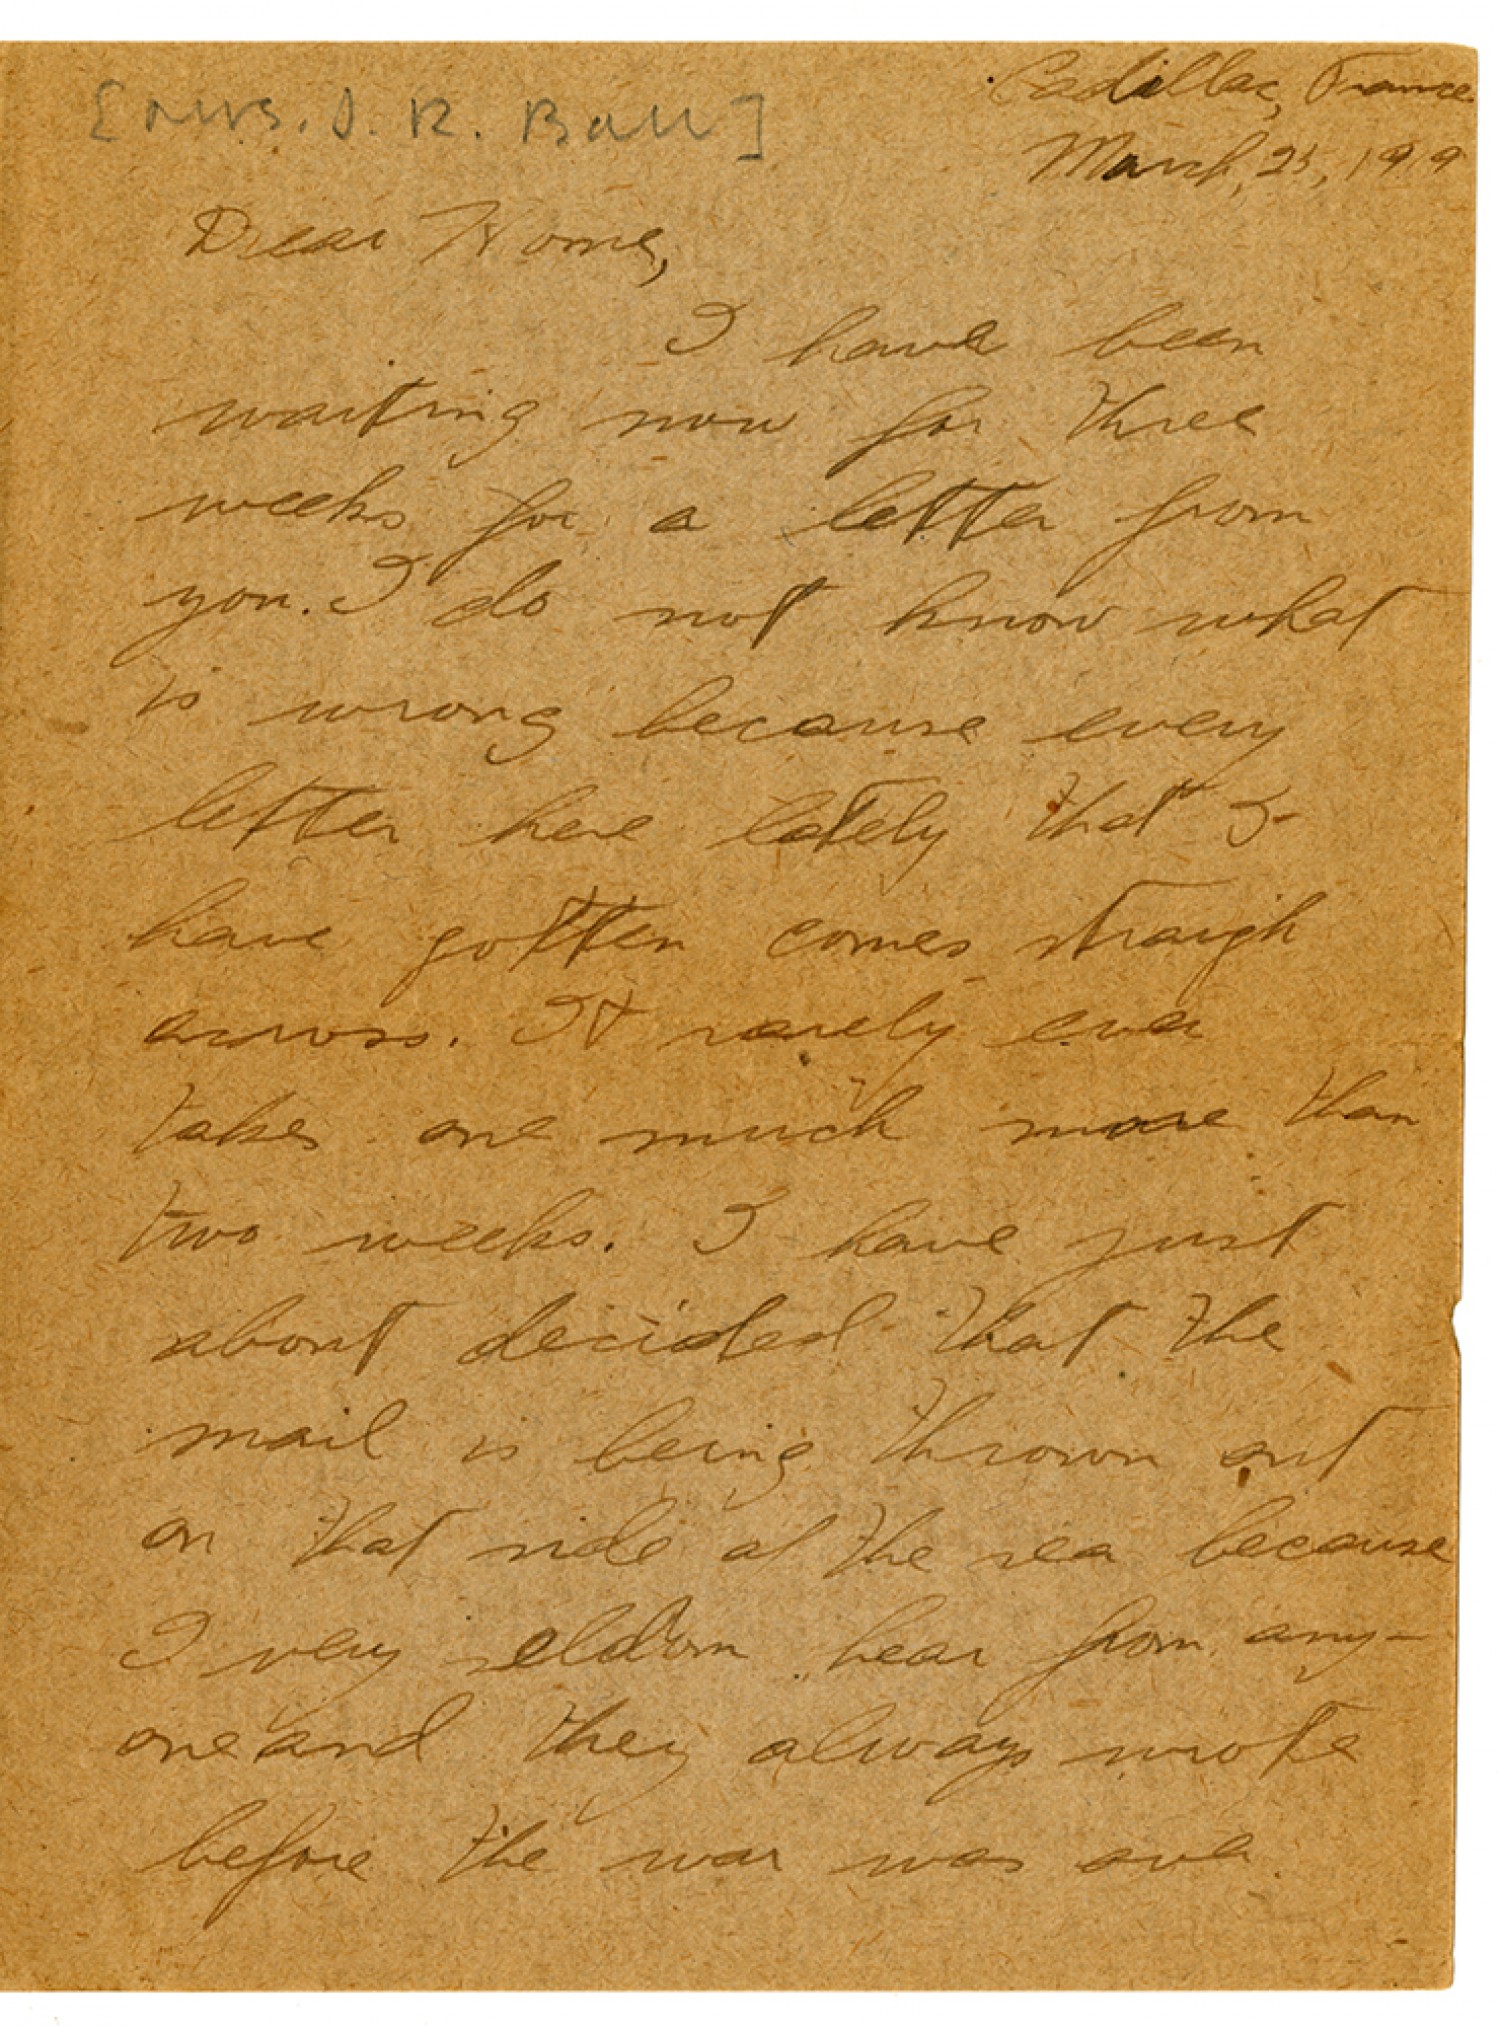 Cadillac, France
[Mrs. J. R. Ball]
March, 25, 1919
Dear Home,
I have been
waiting now for three
weeks for a letter from
you. I do not know what
is wrong because every
letter here lately that I
have gotten comes straigh
across. It rarely ever
takes one much more than
two weeks. I have just
about decided that the
mail is being thrown out
on that side of the sea because
I very seldom hear from any-
one and they always wrote
before the war was over.